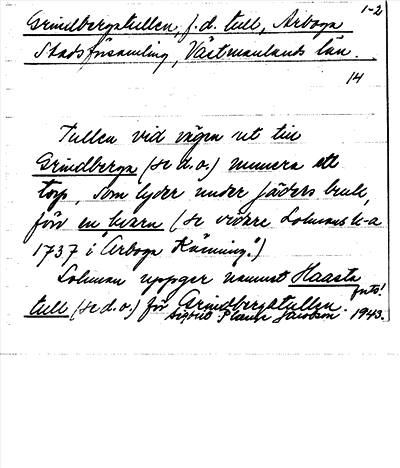 1-2
Grindbergstullen, f.d. tull, Arboga
Stadsförsamling, Västmanlands län.
14
Tullen vid vägen ut till
Grindberga (se d.o.) numera ett
torp, som lyder under Jäders bruk,
förr en kvarn (se vidare Lohmans k-a
1737 i "Arboga Känning.")
Lohman uppger namnet Haasta
tull (se d.o.) för Grindbergstullen. fnts!
Sigurd 1943.